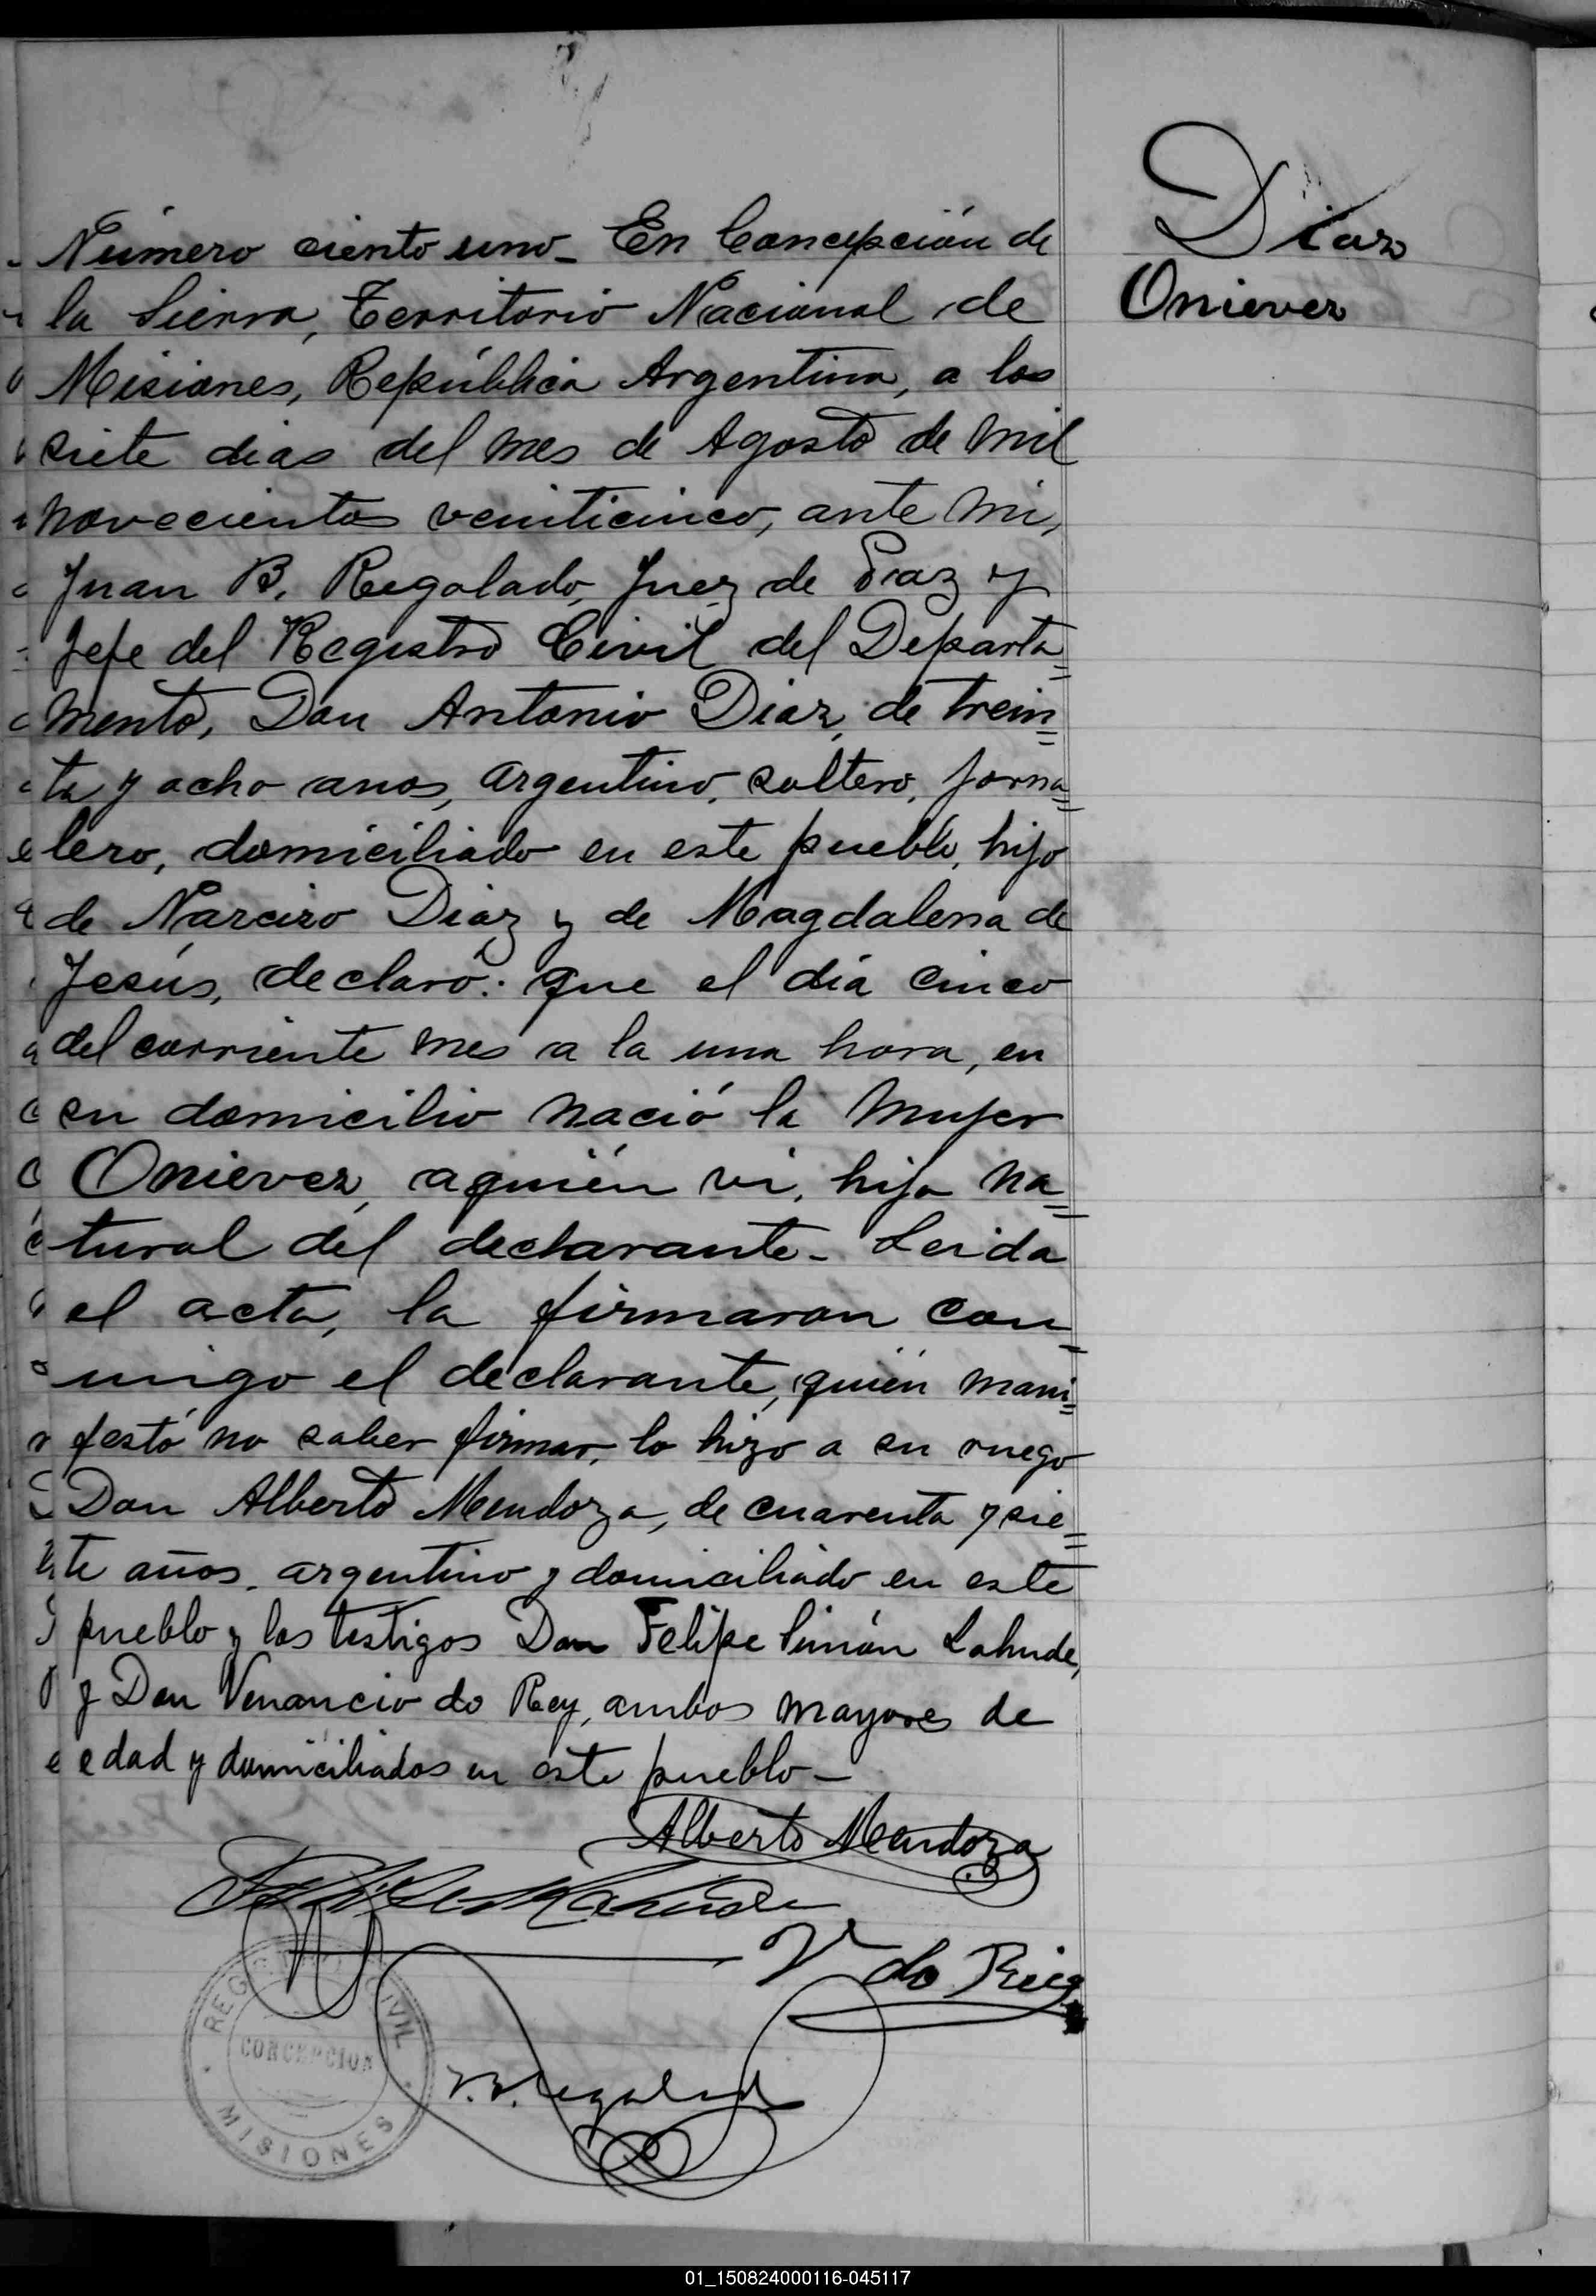 Diaz
Oniever
Número ciento uno_ En Concepción de
la Sierra, Territorio Nacional de
Misiones, República Argentina, a los
siete dias del mes de Agosto de mil
novecientos veinticinco, ante mi,
Juan B. Regalado, Juez de Paz y
Jefe del Registro Civil del Departa=
mento, Don Antonio Diaz, de trein=
ta y ocho anos, argentino, soltero, jorna=
lero, domiciliado en este pueblo, hijo
de Narcizo Diaz y de Magdalena de
Jesús, declaró: que el día cinco
del corriente mes a la una hora, en
su domicilio nació la mujer
Oniever, aquién vi, hija na=
tural del declarante_ Leida
el acta, la firmaron con=
migo el declarante, quién mani=
festó no saber firmar, lo hizo a su ruego
Don Alberto Mendoza, de cuarenta y sie=
te años, argentino y domiciliado en este
pueblo y los testigos Don Felipe Simón Lahude,
y Don Venancio do Rey, ambos mayores de
edad y domiciliados en este pueblo_
Alberto Mendoza
Felipe S Lahude
V do Rey
J. B. Regalado
REGISTRO CIVIL
CONCEPCION
MISIONES
01_150824000116-045117